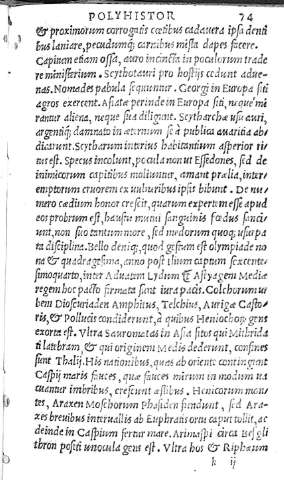 POLYHISTOR 74
& proximorum corrogatis cœtibus cadauera ipsa denti
bus laniare, pecudumq; carnibus mista dapes facere.
Capitum etiam ossa, auro incincta in poculorum trade
re ministerium. Scythotauri pro hostijs cędunt adue-
nas. Nomades pabula sequuntur. Georgi in Europa siti
agros exercent. Asiatę perinde in Europa siti, neque mi
rantur aliena, neque sua diligunt. Scytharchę usu auri,
argentiq; damnato in æternum se à publica auaritia ab-
dicarunt. Scytharum interius habitantium asperior ri
tus est. Specus incolunt, pocula non ut Essedones, sed de
inimicorum capitibus moliuntur, amant prælia, inter-
emptorum cruorem ex uulneribus ipsis bibunt. De nu
mero cædium honor crescit, quarum expertem esse apud
eos probrum est, haustu mutui sanguinis fœdus sanci-
unt, non suo tantummore, sed medorum quoq; usurpa
ta disciplina. Bello deniq; quod gestum est olympiade no
na & quadragesima, anno post ilium captum sexcente-
simoquarto, inter Aduatem Lydum & Astyagem Mediæ
regem hoc pacto firmata sunt iura pacis. Colchorum ur
bem Dioscuriadem Amphitus, Telchius, Aurigæ Casto-
ris, & Pollucis condiderunt, à quibus Heniochorum gens
exorta est. Vltra Sauromatas in Asia sitos qui Mithrida
ti latebram & qui originem Medis dederunt, confines
sunt Thalij. His nationibus, quæ ab oriente contingunt
Caspij maris fauces, quæ fauces mirum in modum ua
cuantur imbribus, crescunt æstibus. Heniocorum mon-
tes, Araxen Moschorum Phasiden fundunt, sed Ara-
xes breuibus interuallis ab Euphratis ortu caput tollit, ac
deinde in Caspium fertur mare. Arimaspi circa
thron positi unocula gens est. Vltra hos & Riphæum
k ij